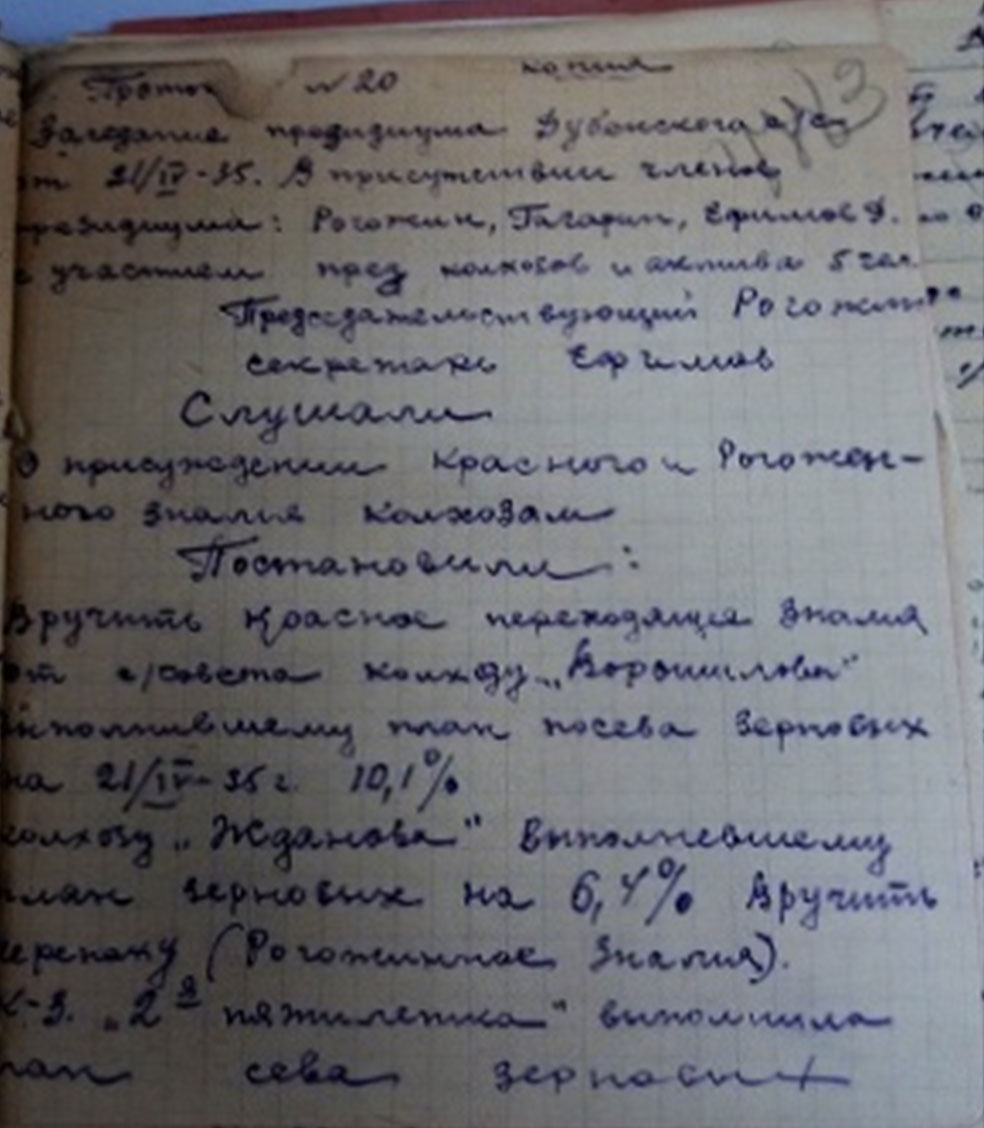 Проток № 20 копия
Заседание президиума Дубонского с/с-
от 21/IV-35. В присутствии членов
президиума: Рогожин, Гагарин, Ефимов Д.
с участием пред колхозов и актива 5 чел.
Председательствующий Рогожин
секретарь Ефимов
Слушали
О присуждении Красного и Рогожен-
ного знамя колхозам
Постановили:
Вручить Красное переходящее Знамя
от с/совета колхозу „Ворошилова"
выполнившему план посева зерновых
на 21/IV-35 г. 10,1%
колхозу „Жданова" выполневшему
план зерновых на 6,4% Вручить
черепаху (Рогожинное Знамя).
К-з. „2я пятилетка" выполнила
план сева зерновых